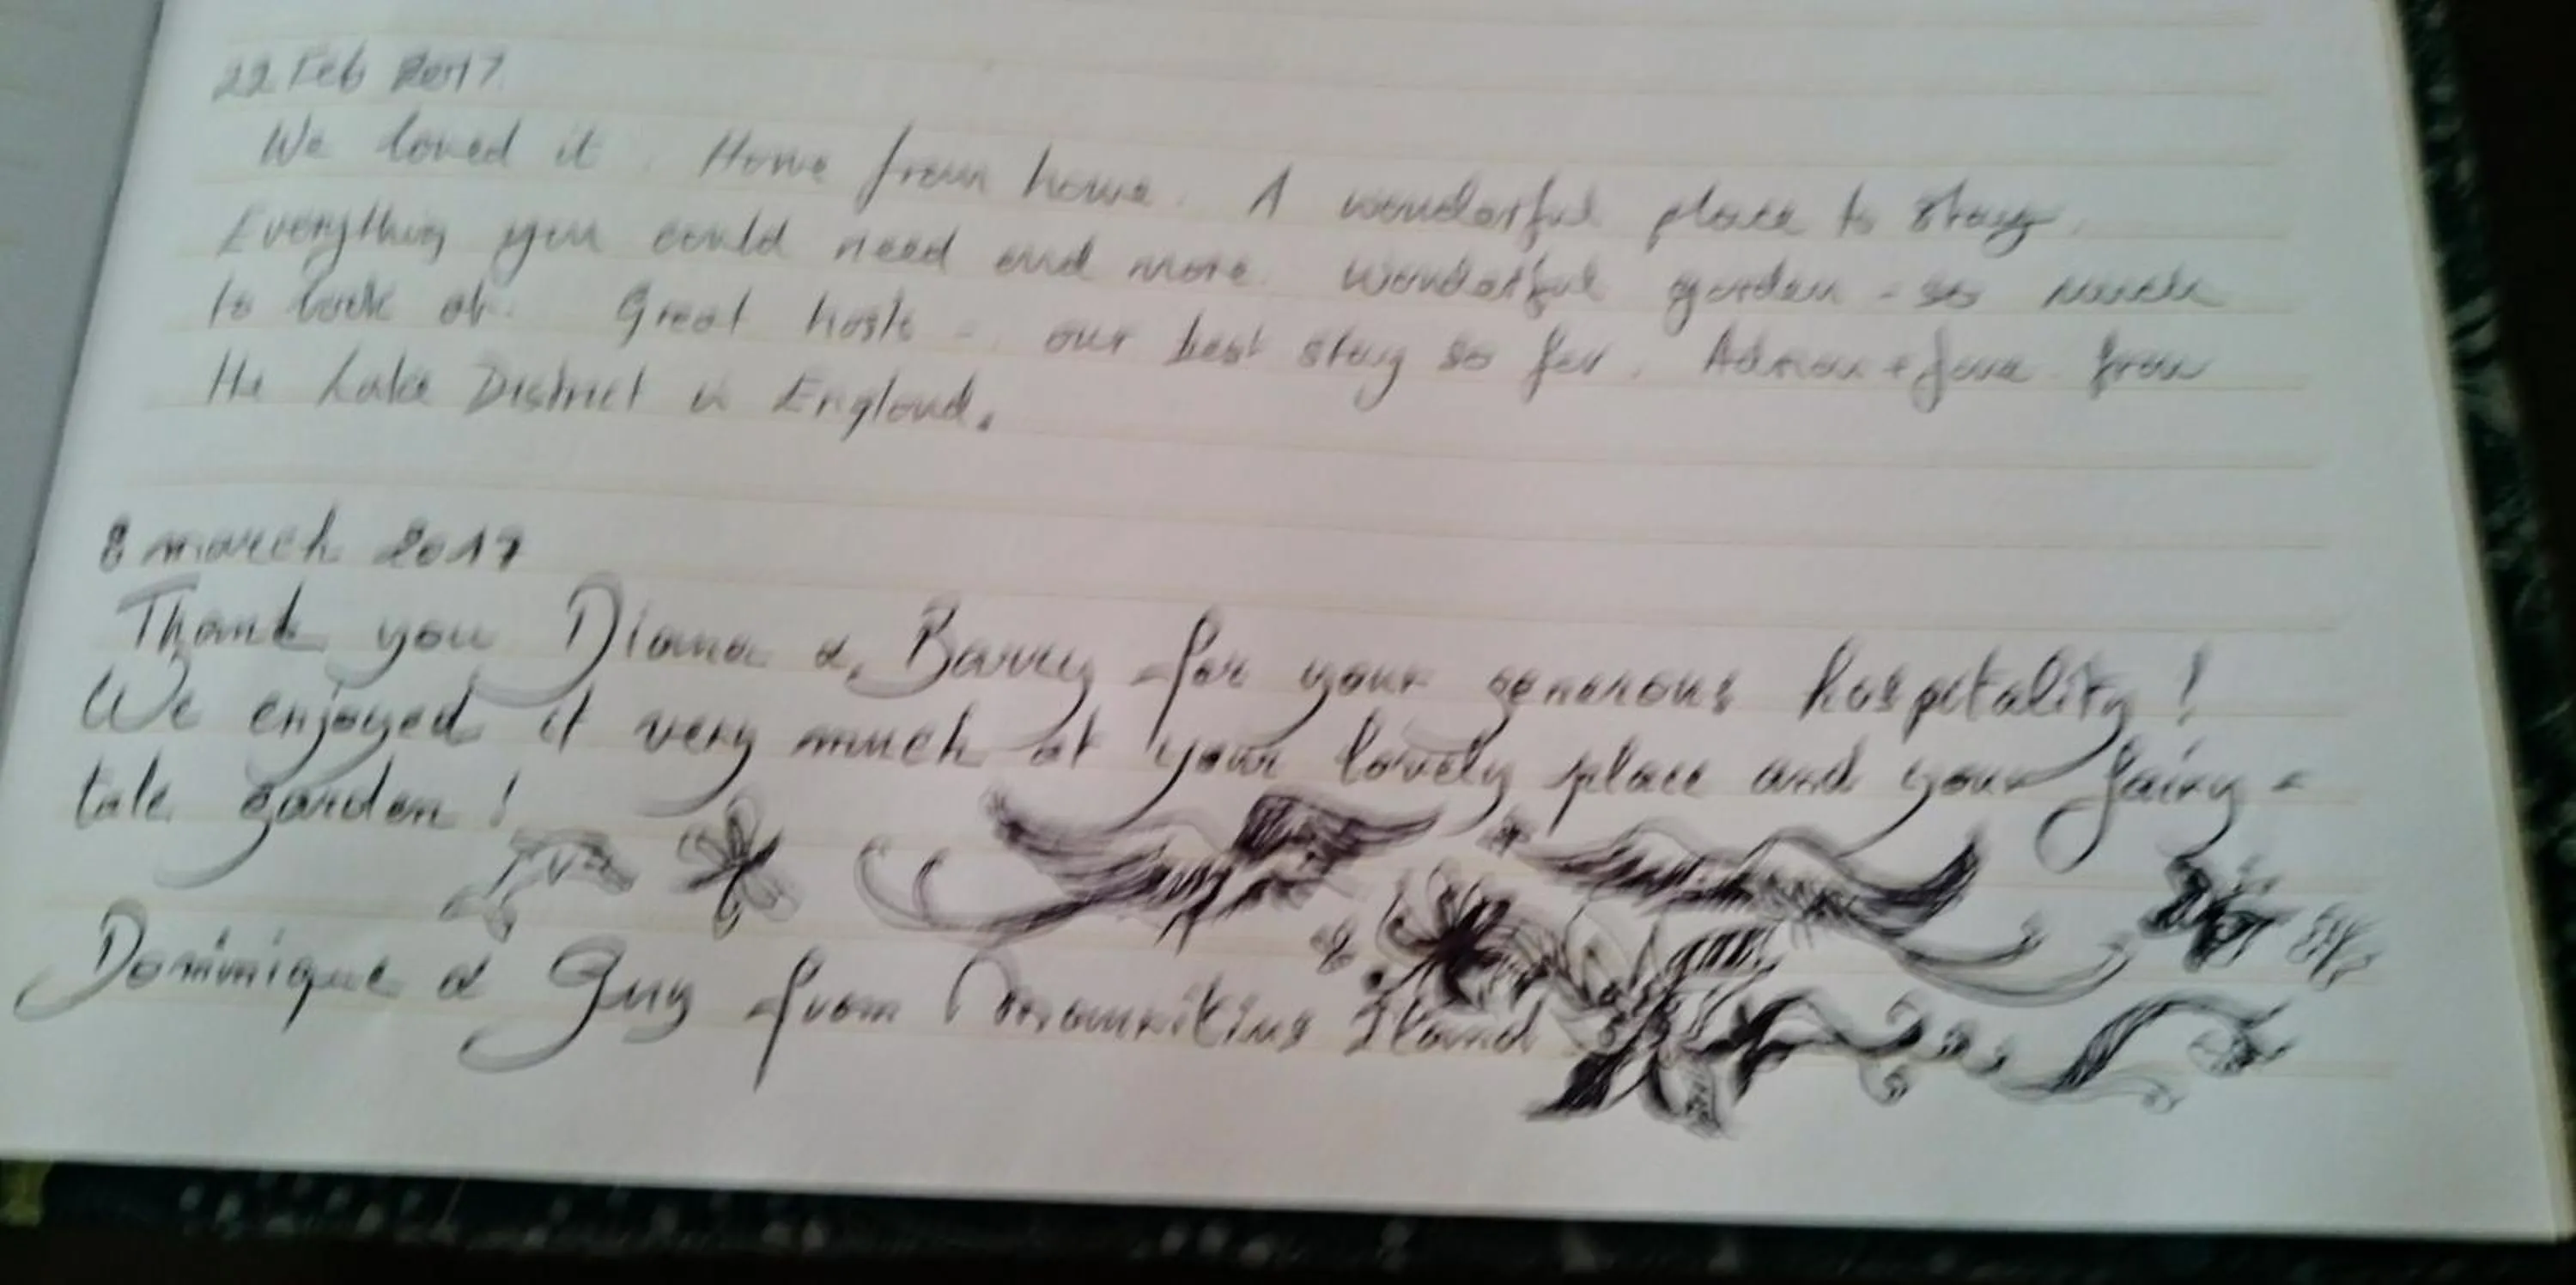 22 Feb 2017
We loved it. Home from home. A wonderful place to stay.
Everything you could need and more. Wonderful garden - so much
to look at. Great hosts - our best stay so far. + Jane from
the Lake District in England.
8 march 2017
Thank you Diana & Barry for your generous hospitality!
We enjoyed it very much at your lovely place and your fairy-
tale garden!
Dominique & Guy from mauritius Island